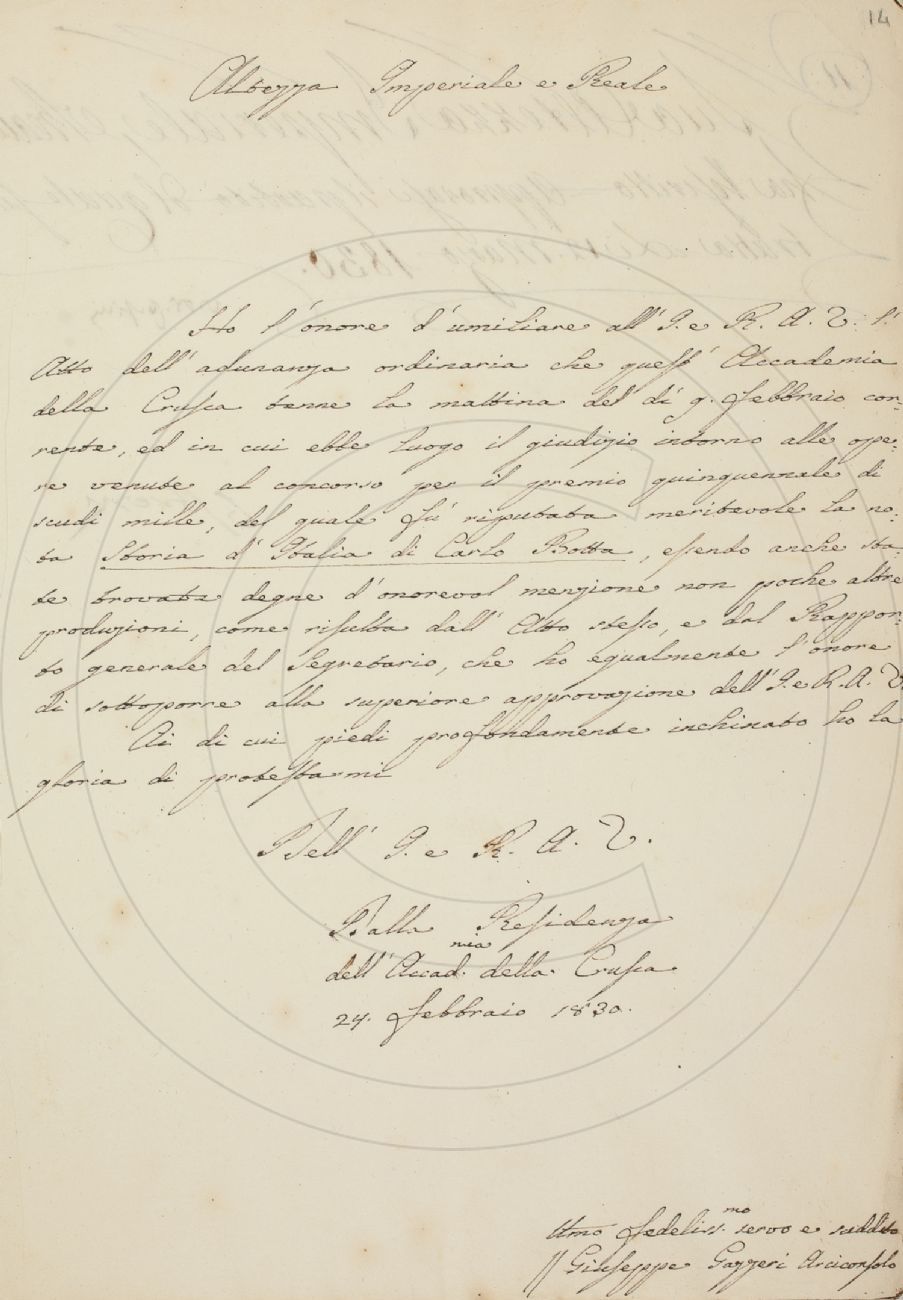 14
Altezza Imperiale e Reale
Ho l'onore d'umiliare all'I. e R. A. V. l'
Atto dell'adunanza ordinaria che quest'Accademia
della Crusca tenne la mattina del dì 9. Febbraio cor=
rente, ed in cui ebbe luogo il giudizio intorno alle ope=
re venute al concorso per il premio quinquennale di
scudi mille, del quale fù riputata meritevole la no=
ta Storia d'Italia di Carlo Botta, essendo anche sta=
te trovate degne d'onorevol menzione non poche altre
produzioni, come risulta dall'Atto stesso, e dal Rappor=
to generale del Segretario, che ho egualmente l'onore
di sottoporre alla superiore approvazione dell'I. e R. A. V.
Ai di cui piedi profondamente inchinato ho la
gloria di protestarmi
Dell'I. e R. A. V.
Dalla Residenza
dell'Accad.mia della Crusca
24. Febbraio 1830.
Umo Fedeliss.mo servo e suddito
Giuseppe Gazzeri Arciconsolo